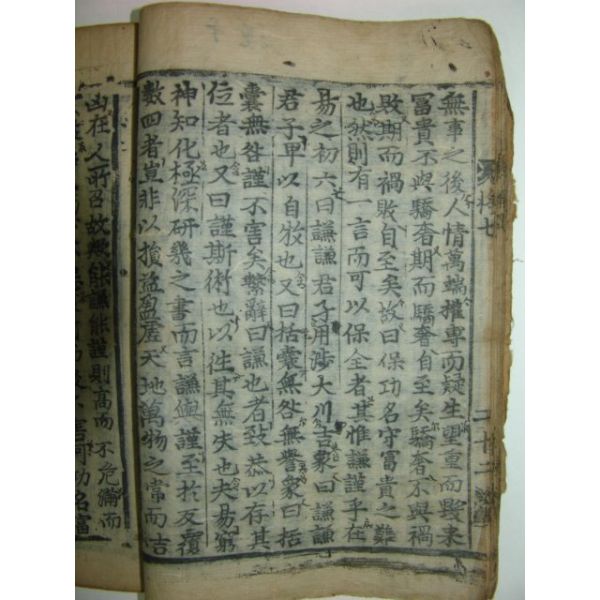 無事之後人情萬端權專而疑生望重而毁來
冨貴不與驕奢期而驕奢自至矣驕奢不與禍
敗期而禍敗自至矣故曰保功名守富貴之難
也然則有一言而可以保全者其惟謙謹乎在
易之初六曰謙謙君子用涉大川吉象曰謙謙
君子卑以自牧也又曰括囊無咎無譽象曰括
囊無咎謹不害矣繫辭曰謙也者致恭以存其
位者也又曰謹斯術也以徃其無失也夫易窮
神知化極深研幾之書而言謙與謹至於反覆
數四者豈非以損益盈虛天地萬物之常而吉
凶在人所召故 能謙能謹則高而不危滿而